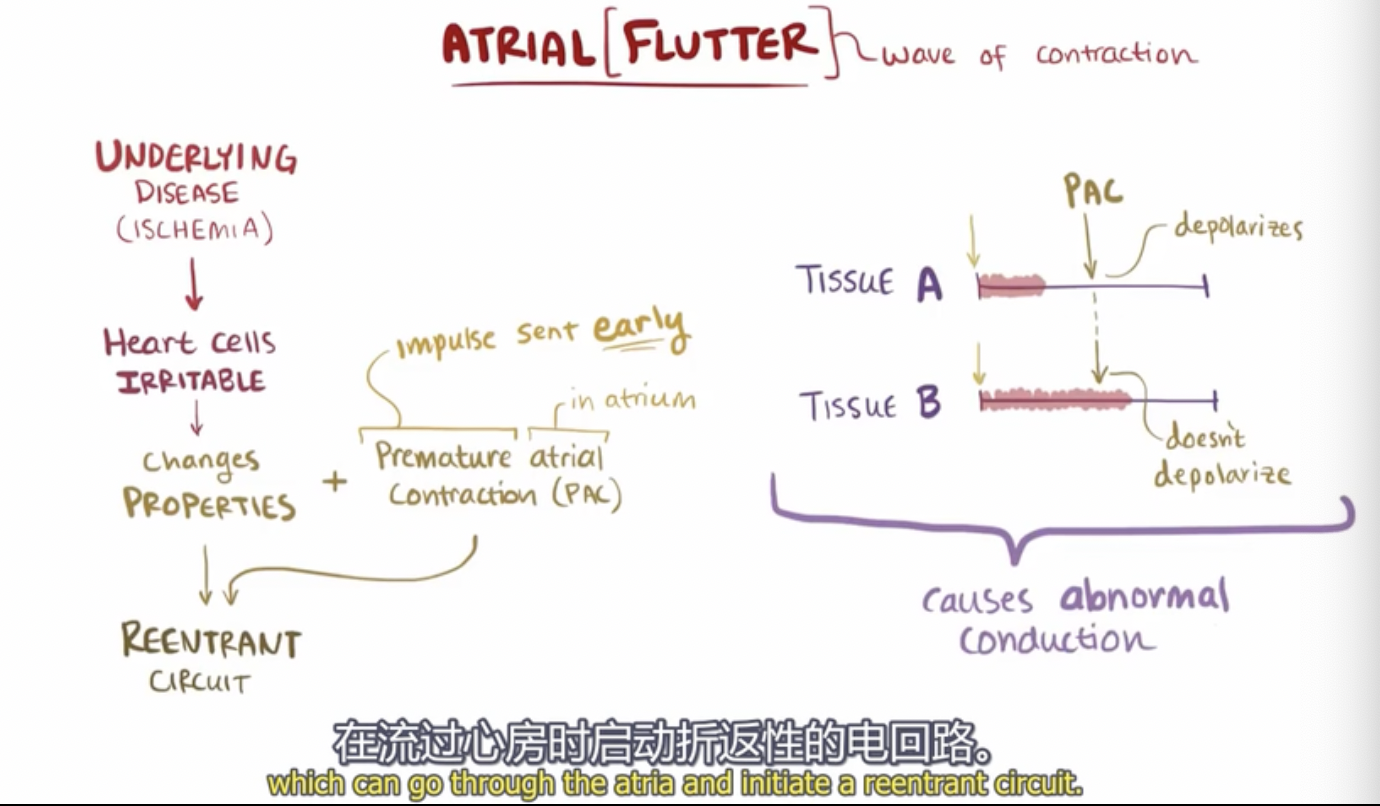 ATRIAL [FLUTTER] wave of contraction
UNDERLYING
DISEASE
(ISCHEMIA)
Heart cells
IRRITABLE
Changes
PROPERTIES
+
impulse sent early
in atrium
Premature atrial
Contraction (PAC)
REENTRANT
CIRCUIT
PAC
depolarizes
TISSUE A
TISSUE B
doesn't
depolarize
causes abnormal
conduction
在流过心房时启动折返性的电回路。
which can go through the atria and initiate a reentrant circuit.